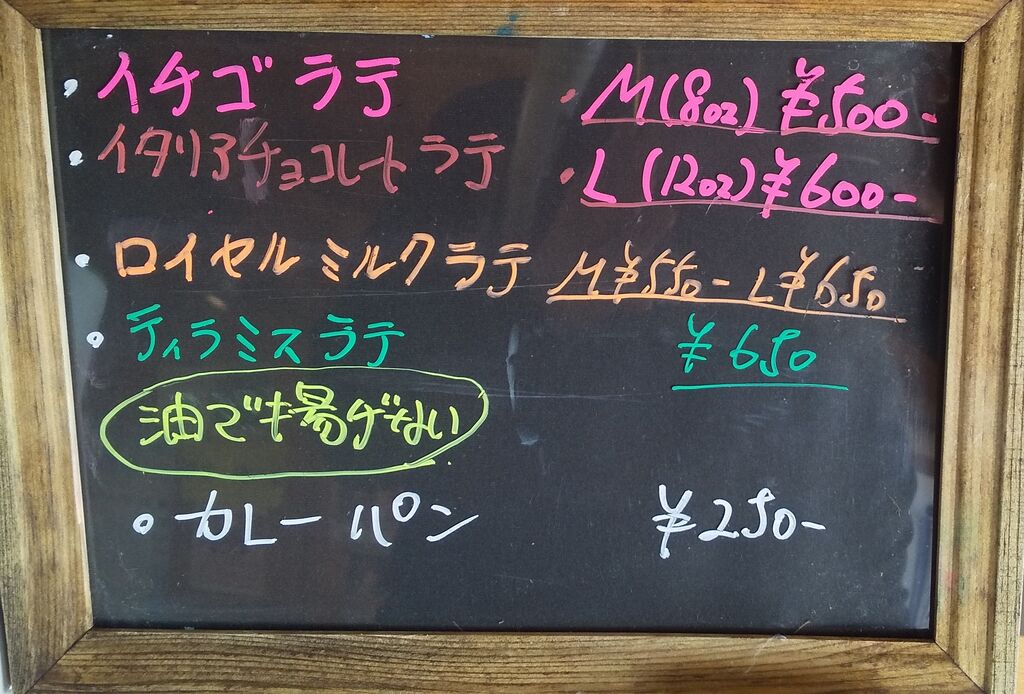 ・イチゴラテ ・M(8oz) ¥500-
・イタリアチョコレートラテ ・L(12oz) ¥600-
・ロイヤルミルクラテ M¥550- L¥650
・ティラミスラテ ¥650
油で揚げない
・カレーパン ¥250-